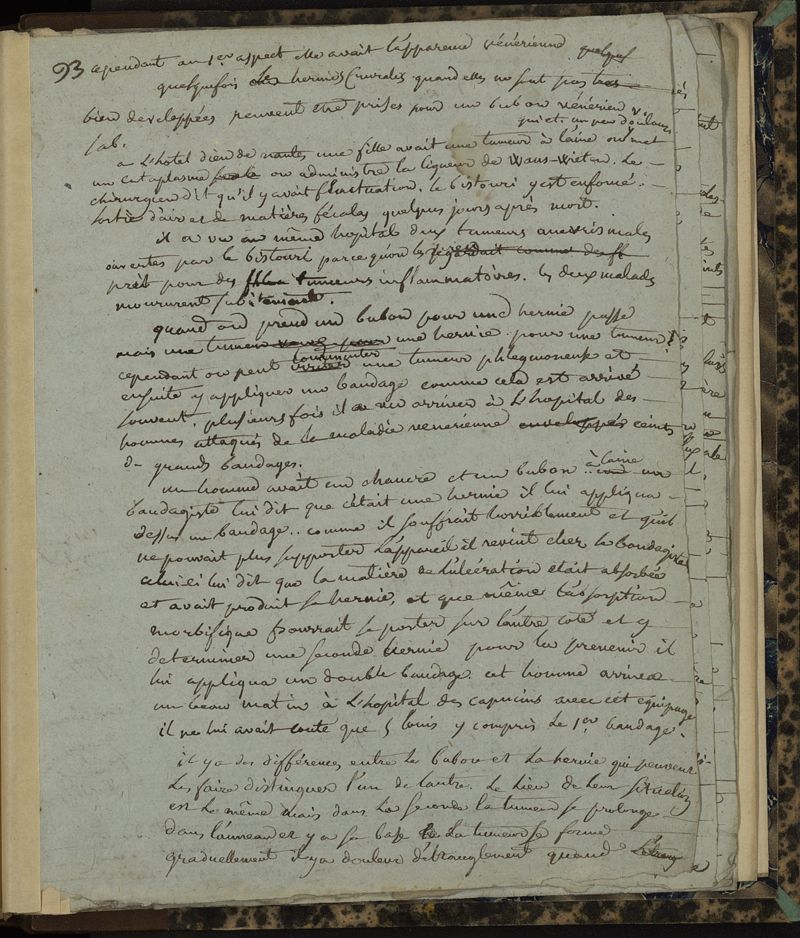 93 cependant au 1er aspect elle avait l'apparence vénérienne quelquf
quelquefois des hernies Crurales quand elles ne sont pas tres
bien developpées peuvent etre prises pour un bubon vénérien v.
qui et. un peu douloureux
fab.
a L'hotel dieu de nantes une fille avait une tumeur à l'aine on met
un cataplasme on administre la liqueur de Wans-wietin. Le
chirurgien dit qu'il y avait fluctuation. le bistouri y est enfoncé.
sortie d'air et de matières fécales quelques jours après mort.
il a vu au même hopital deux tumeurs anevrismales
ouvertes par le bistouri parce qu'on les regardait comme des fl
prêt pour des tumeurs inflammatoires. les deux malades
moururent subitement.
quand on prend un bubon pour une hernie passe
mais une tumeur une hernie. pour une tumeur!
cependant on peut une tumeur phlegmoneuse et
ensuite y appliquer un bandage comme cela est arrivé
souvent. plusieurs fois il a vu arriver à L'hopital des
hommes attaqués de la maladie venerienne enveloppés ceints
de grands bandages.
un homme avait un chancre et un bubon à l'aine un
bandagiste lui dit que c'était une hernie il lui appliqua
dessus un bandage.. comme il souffrait horriblement et qu'il
ne pouvait plus supporter l'appareil il revint chez le bandagiste
celui-ci lui dit que la matière de l'ulcération etait absorbée
et avait produit sa hernie, et que même l'absorption
morbifique pourrait se porter sur l'autre coté et y
determiner une seconde hernie pour la prevenir il
lui appliqua un double bandage. cet homme arriva
un beau matin à L'hopital des capucins avec cet équipage
il ne lui avait couté que 5 louis y compris le 1er bandage.
il y a des différences entre le bubon et la hernie qui peuvent
les faire distinguer l'un de l'autre. Le lieu de leur situation
est le même mais dans la seconde la tumeur se prolonge
dans l'anneau et y a sa base la tumeur se forme
graduellement il y a douleur d'étranglement quand l'étrang